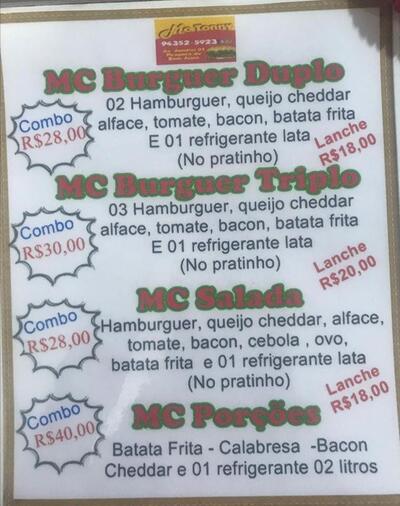 McTonny
94352-5923
MC Burguer Duplo
02 Hamburguer, queijo cheddar
alface, tomate, bacon, batata frita
E 01 refrigerante lata
(No pratinho)
Combo
R$28,00
Lanche
R$18,00
MC Burguer Triplo
03 Hamburguer, queijo cheddar
alface, tomate, bacon, batata frita
E 01 refrigerante lata
(No pratinho)
Combo
R$30,00
Lanche
R$20,00
MC Salada
Hamburguer, queijo cheddar, alface,
tomate, bacon, cebola , ovo,
batata frita e 01 refrigerante lata
(No pratinho)
Combo
R$28,00
Lanche
R$18,00
MC Porções
Combo
R$40,00
Batata Frita - Calabresa -Bacon
Cheddar e 01 refrigerante 02 litros